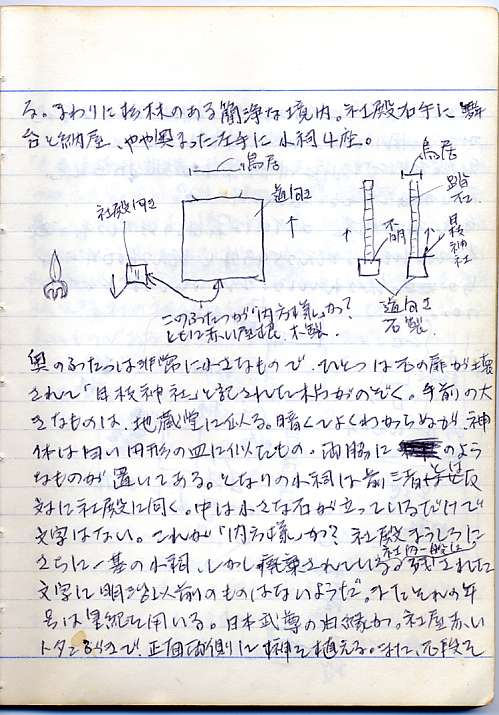 る。まわりに松林のある簡浄な境内。社殿右手に舞
台と納屋、やや奥まった左手に小祠4座。
鳥居
鳥居
道向き
踏石
社殿向き
不明
日枝神社
このふたつが「内方様」か?
ともに赤い屋根、木製.
道向き
石製.
奥のふたつは非常に小さなもので、ひとつは石の扉が壊
されて「日枝神社」と記された木片がのぞく。手前の大
きなものは、地蔵堂に似る。暗くてよくわからぬが、神
体は白い円形の皿に似たもの。両脇に のよう
なものが置いてある。となりの小祠は前三者とは反
対に社殿に向く。中は小さな石が立っているだけで
文字はない。これが「内方様」か? 社殿うしろに
さらに一基の小祠、しかし廃棄されている。残された
文字に明治以前のものはないようだ。またそれの年
号は皇紀を用いる。日本武尊の由縁か。社屋赤い
トタンぶきで、正面両側に榊を植える。また、石段を